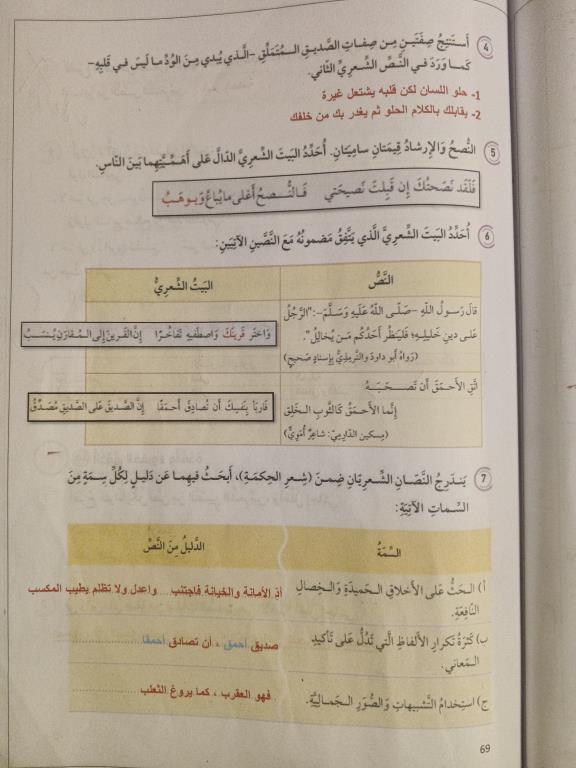 4 أَستَنتِجُ صِفَتَينِ مِن صِفاتِ الصَّديقِ المُتَمَلِّقِ -الَّذي يُبدي مِنَ الوُدِّ ما لَيسَ في قَلبِهِ-
كَما وَرَدَ في النَّصِّ الشِّعرِيِّ الثّاني.
1- حلو اللسان لكن قلبه يشتعل غيرة
2- يقابلك بالكلام الحلو ثم يغدر بك من خلفك
5 النُّصحُ وَالإِرشادُ قيمَتانِ سامِيَتانِ. أُحَدِّدُ البَيتَ الشِّعرِيَّ الدّالَّ عَلى أَهَمِّيَّتِهِما بَينَ النّاسِ.
فَلَقَد نَصَحتُكَ إِن قَبِلتَ نَصيحَتي فَالنُّصحُ أَغلى ما يُباعُ وَيوهَبُ
6 أُحَدِّدُ البَيتَ الشِّعرِيَّ الَّذي يَتَّفِقُ مَضمونُهُ مَعَ النَّصَّينِ الآتِيَينِ:
النَّصُّ البَيتُ الشِّعرِيُّ
قالَ رَسولُ اللهِ -صَلّى اللهُ عَلَيهِ وَسَلَّمَ-: "الرَّجُلُ
عَلى دينِ خَليلِهِ؛ فَليَنظُر أَحَدُكُم مَن يُخالِلُ".
(رَواهُ أَبو داودَ وَالتِّرمِذِيُّ بِإِسنادٍ صَحيحٍ)
وَاختَر قَرينَكَ وَاصطَفيهِ تَفاخُرًا إِنَّ القَرينَ إِلى المُقارَنِ يُنسَبُ
اتَّقِ الأَحمَقَ أَن تَصحَبَهُ
إِنَّما الأَحمَقُ كَالثَّوبِ الخَلِق
(مِسكين الدّارِمِيّ: شاعِرٌ أُمَوِيٌّ)
فَاربَأ بِنَفسِكَ أَن تُصادِقَ أَحمَقًا إِنَّ الصَّديقَ عَلى الصَّديقِ مُصَدِّقُ
7 يَندَرِجُ النَّصّانِ الشِّعرِيّانِ ضِمنَ (شِعرِ الحِكمَةِ)، أَبحَثُ فيهِما عَن دَليلٍ لِكُلِّ سِمَةٍ مِنَ
السِّماتِ الآتِيَةِ:
السِّمَةُ الدَّليلُ مِنَ النَّصِّ
أ) الحَثُّ عَلى الأَخلاقِ الحَميدَةِ وَالخِصالِ
النّافِعَةِ.
أد الأمانة والخيانة فاجتنب ... واعدل ولا تظلم يطيب المكسب
ب) كَثرَةُ تَكرارِ الأَلفاظِ الَّتي تَدُلُّ عَلى تَأكيدِ
المَعاني.
صديق أحمق ، أن تصادق أحمقا
ج) استِخدامُ التَّشبيهاتِ وَالصُّوَرِ الجَمالِيَّةِ.
فهو العقرب ، كما يروغ الثعلب
69